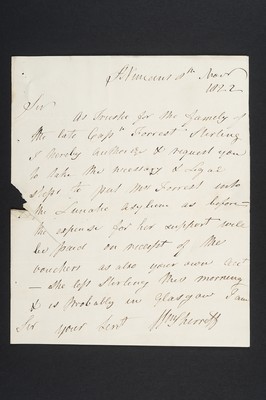 St Vincents 11th Novr
1822
Sir
As Trustee for the family of
the late Captn Forrest Stirling
I hereby authorize & request you
to take the necessary & Legal
steps to put Mrs Forrest into
the Lunatic Asylum as before
the expense for her support will
be paid on receipt of the
vouchers as also your own act
– she left Stirling this morning
& is Probably in Glasgow I am
Sir your Sert Wm Sherriff